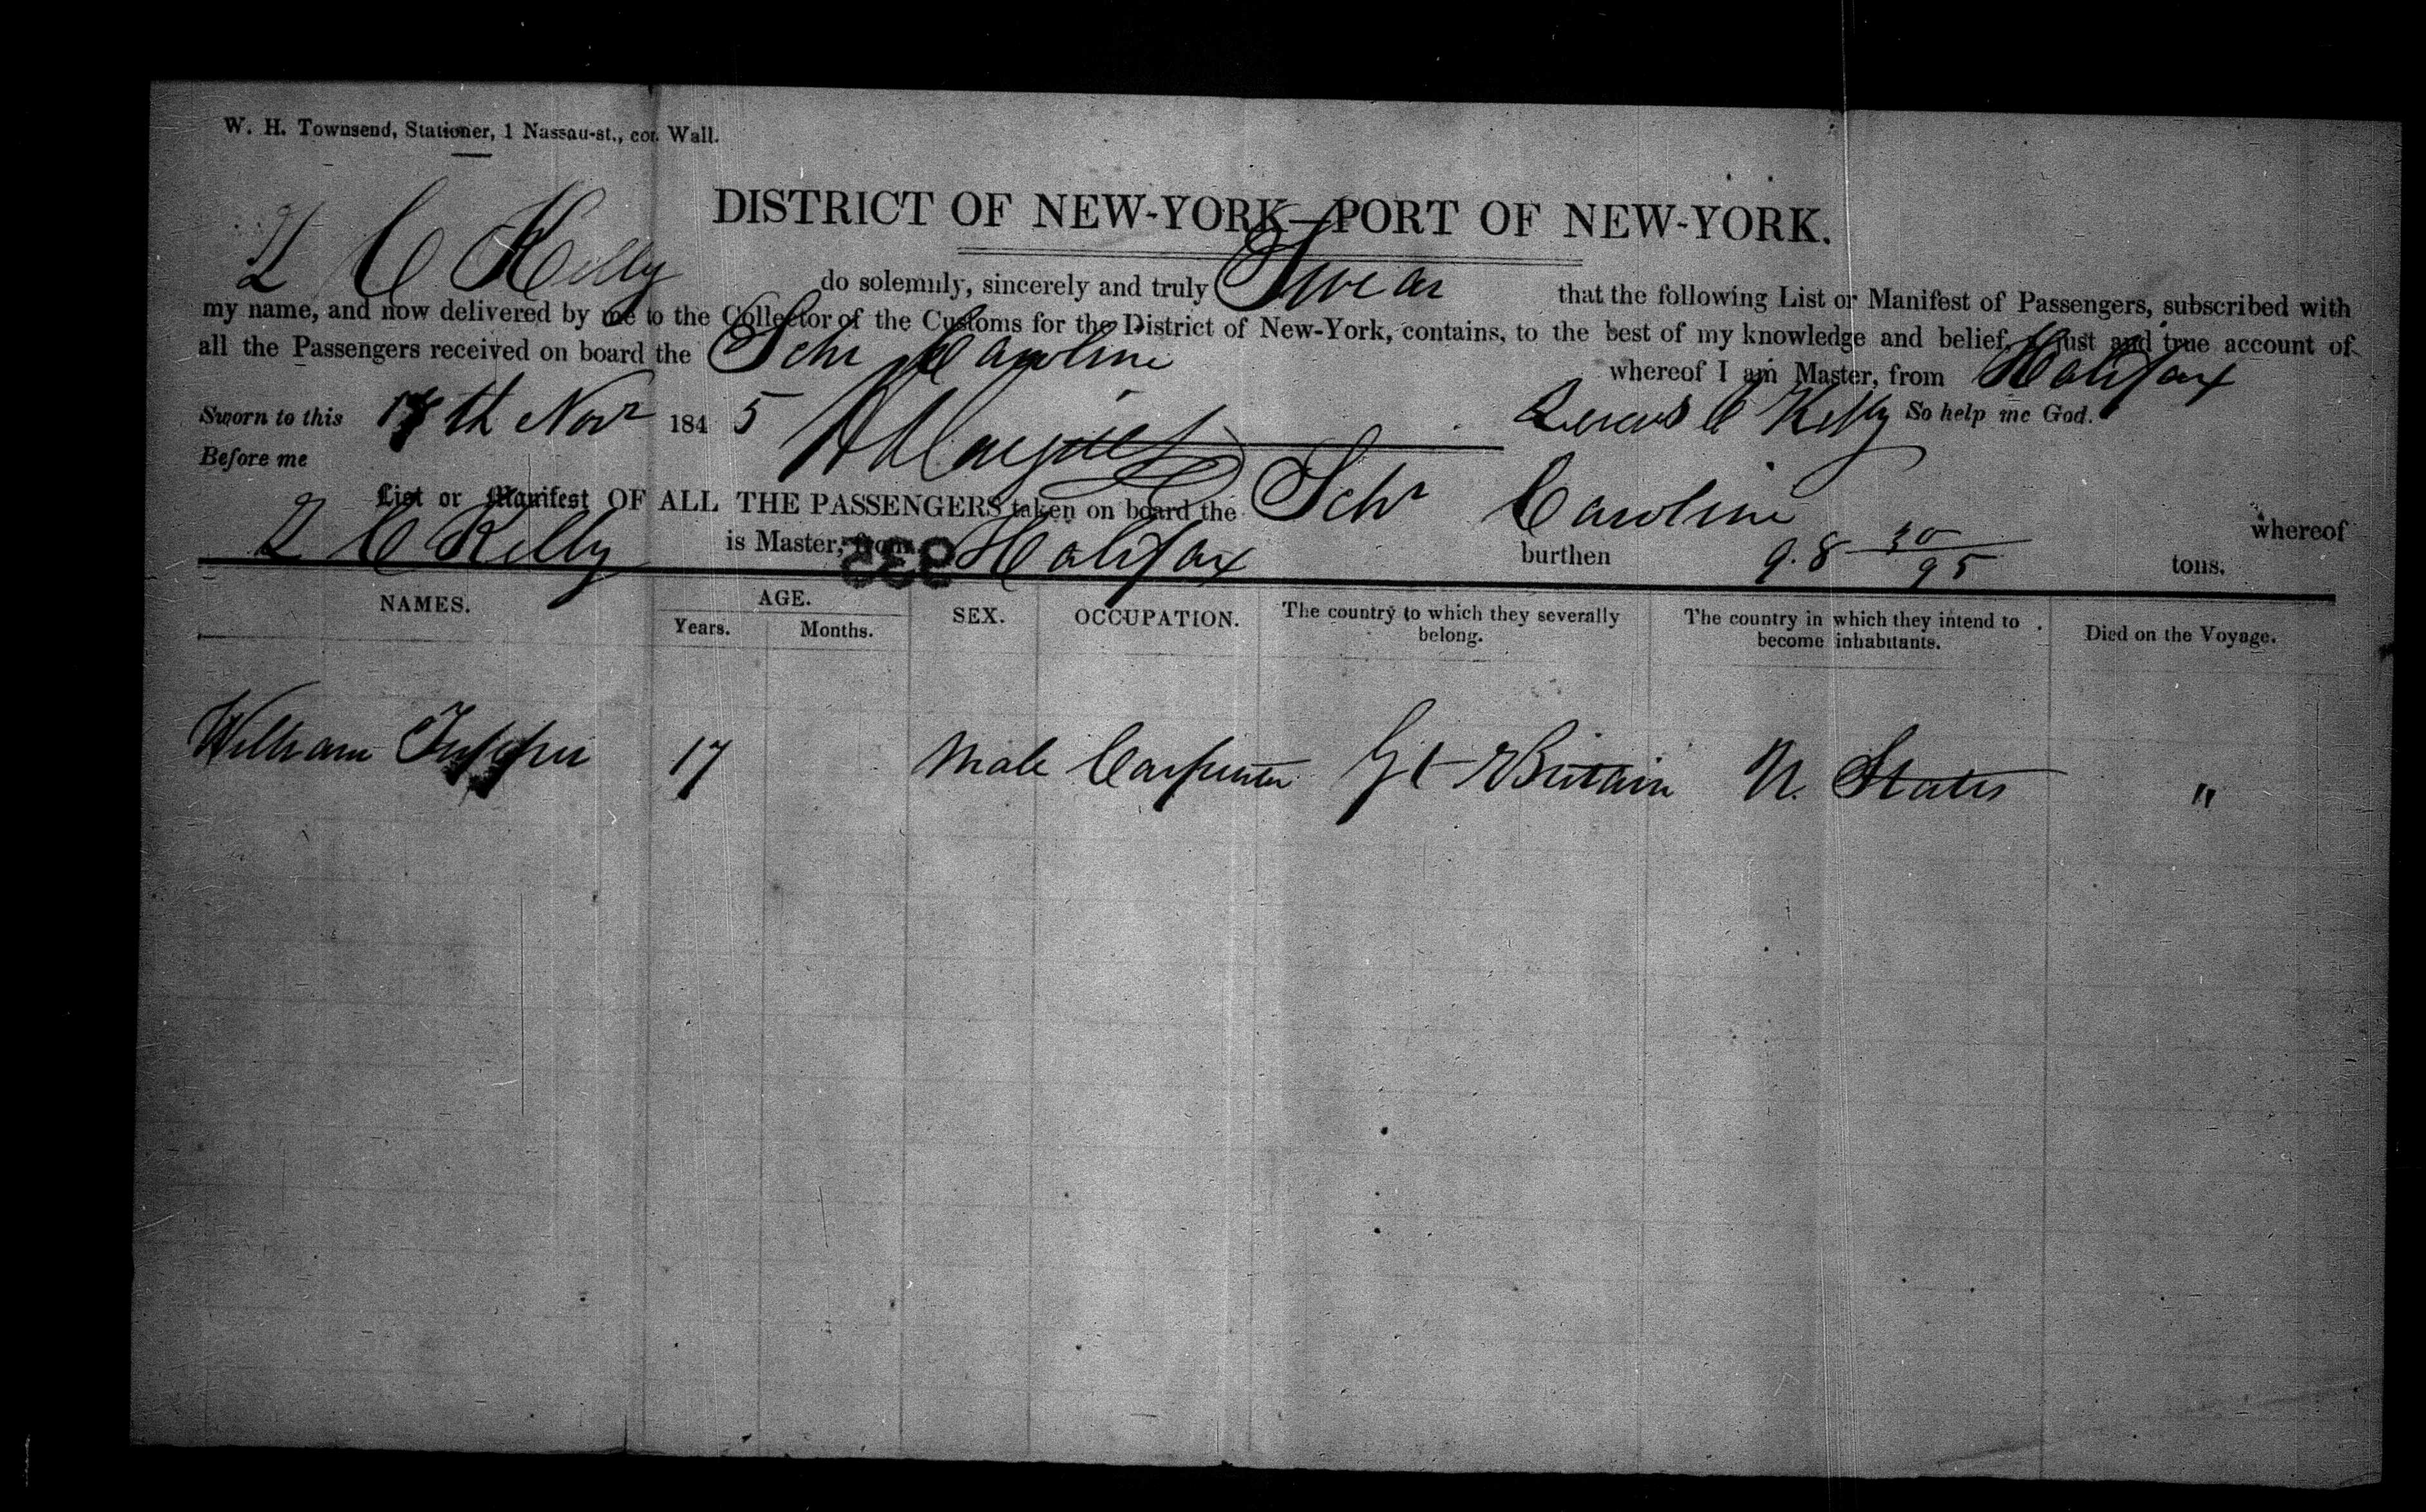 W. H. Townsend, Stationer, 1 Nassau-st., cor. Wall.
DISTRICT OF NEW-YORK—PORT OF NEW-YORK.
L C Kelly do solemnly, sincerely and truly Swear that the following List or Manifest of Passengers, subscribed with
my name, and now delivered by me to the Collector of the Customs for the District of New-York, contains, to the best of my knowledge and belief, a just and true account of
all the Passengers received on board the Schr Caroline whereof I am Master, from Halifax
Sworn to this 18th Novr 1845 C Kelly So help me God.
Before me
List or Manifest OF ALL THE PASSENGERS taken on board the Schr Caroline whereof
L C Kelly is Master, from Halifax burthen 98 30/95 tons.
935
NAMES. AGE. SEX. OCCUPATION. The country to which they severally belong. The country in which they intend to become inhabitants. Died on the Voyage.
Years. Months.
William Tupper 17 Male Carpenter Gt Britain U. States "